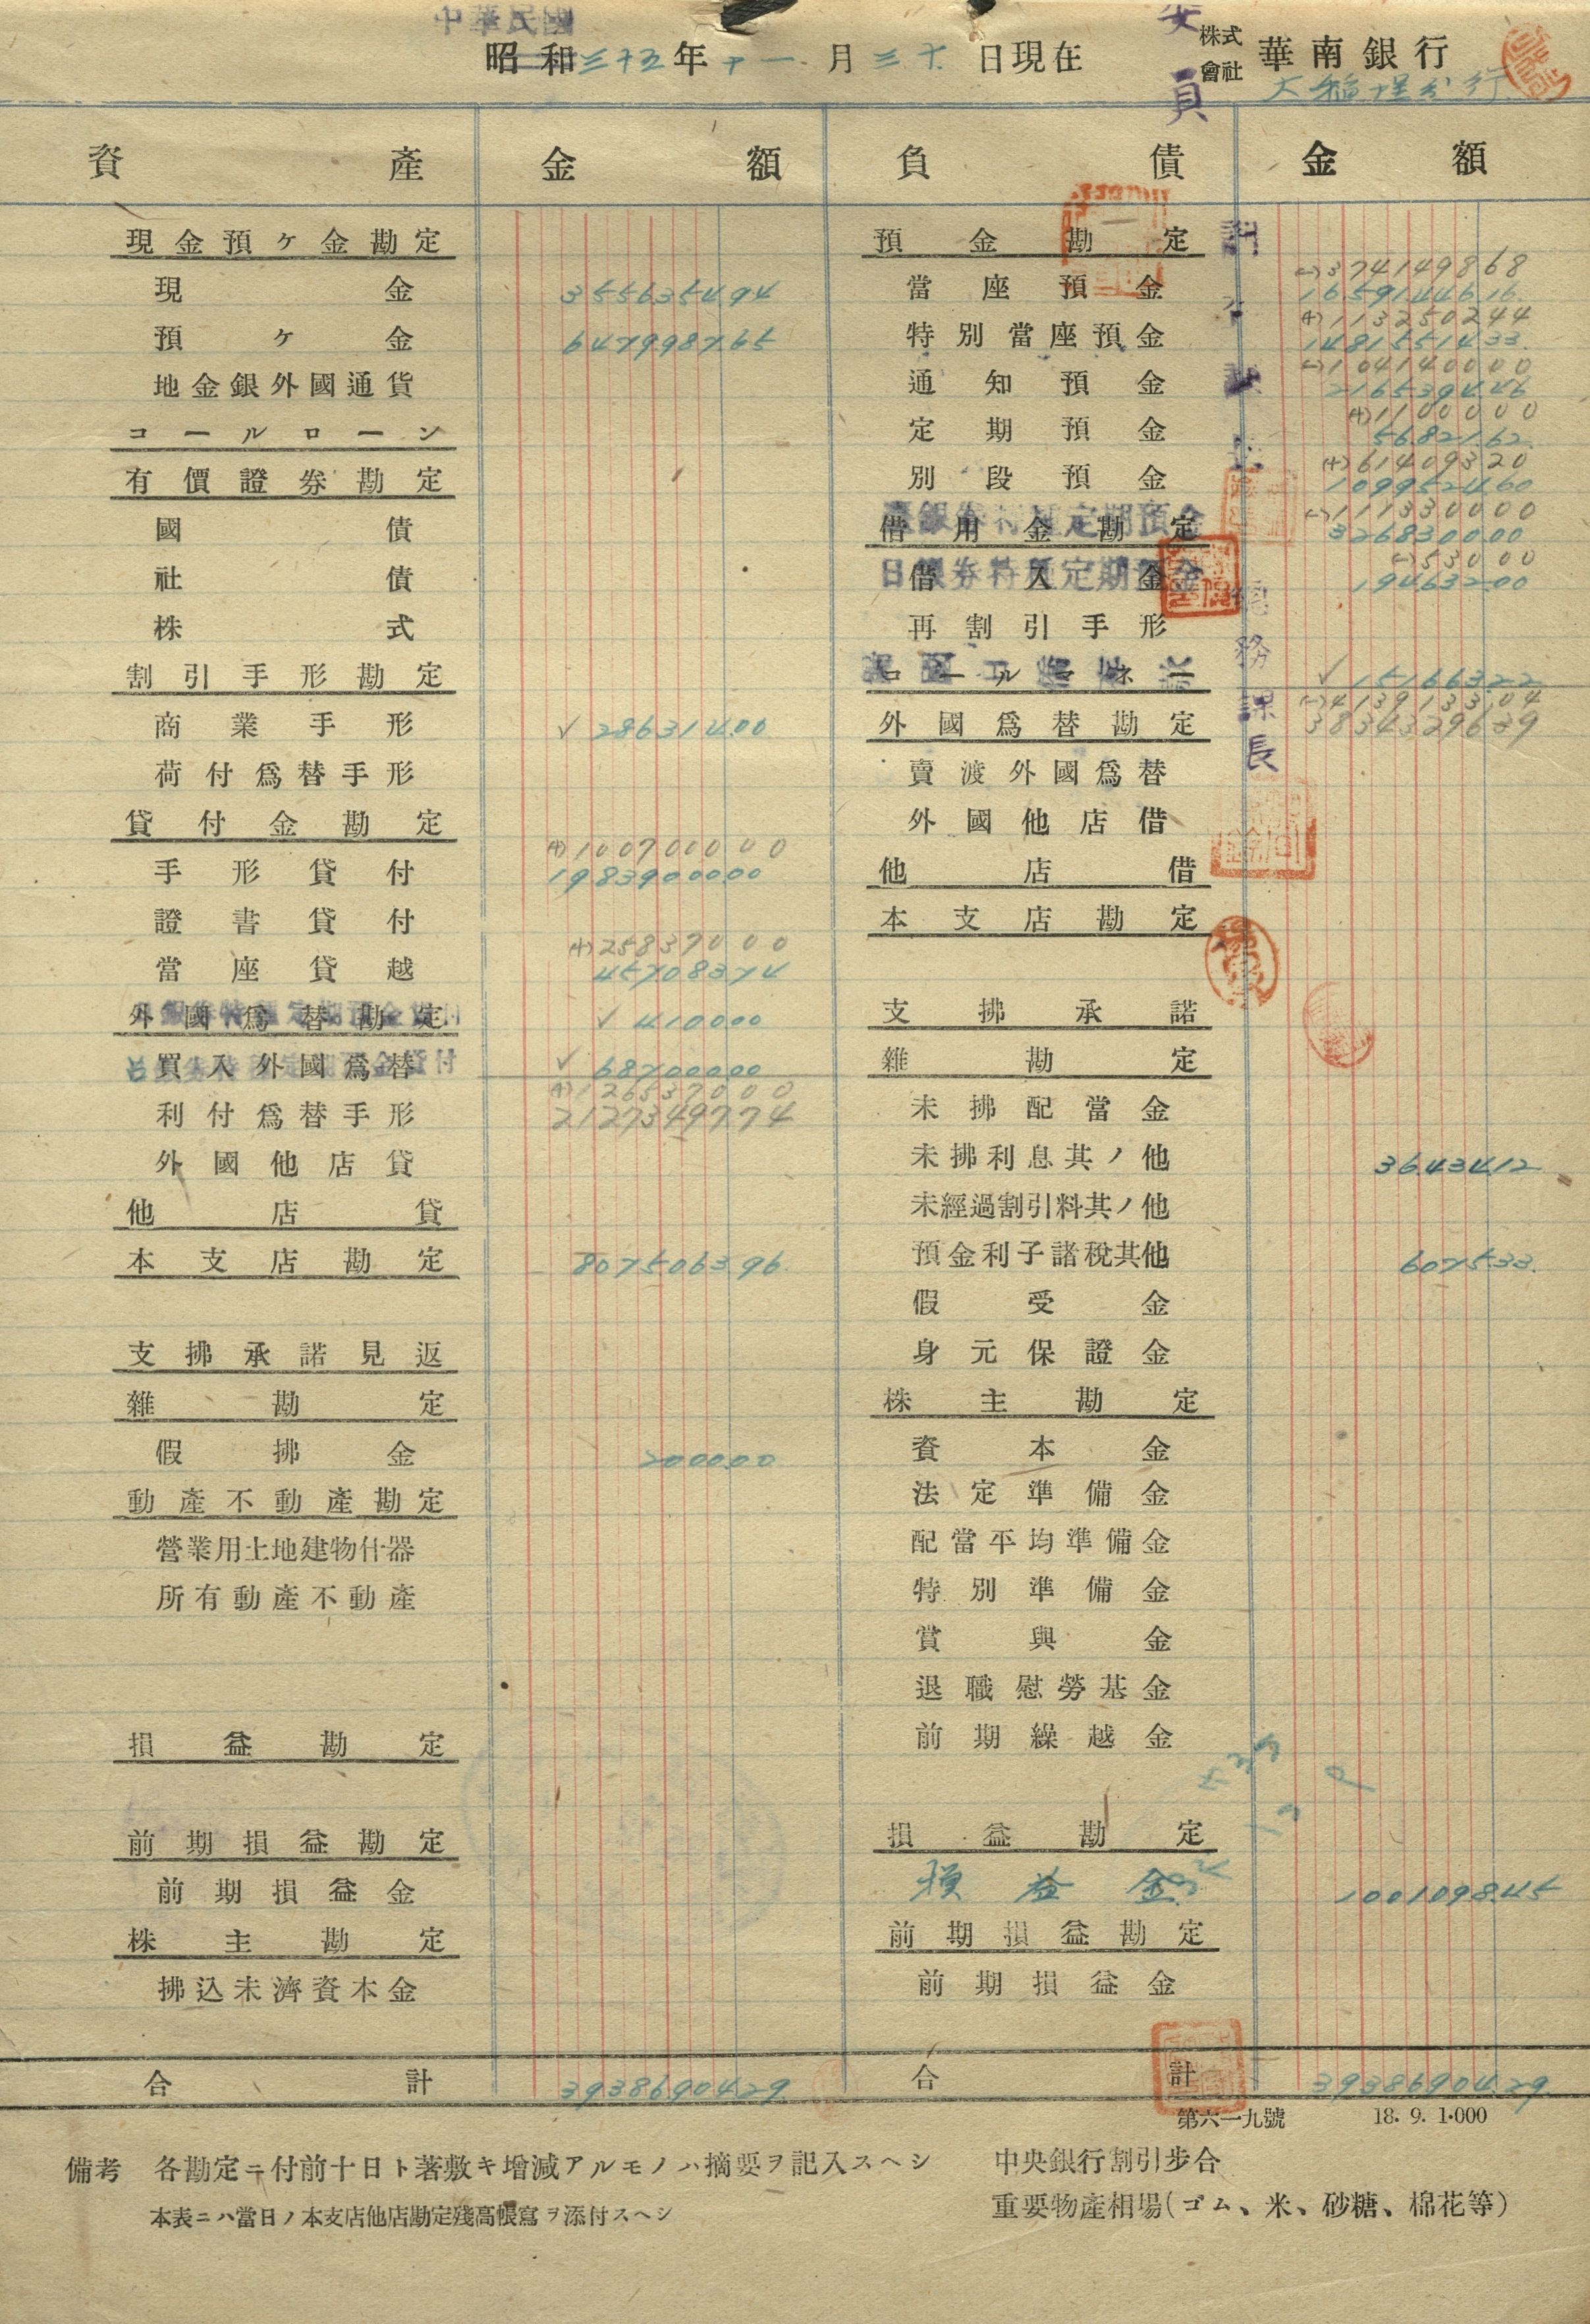 中華民國
昭和三十五年十一月三十日現在
株式會社 華南銀行
大稻埕分行
委員
資產 金額 負債 金額
現金預ヶ金勘定
現金 355635494
預ヶ金 647998765
地金銀外國通貨
コールローン
有價證券勘定
國債
社債
株式
割引手形勘定
商業手形 ✓ 28631400
荷付爲替手形
貸付金勘定
(+)100700000
手形貸付 1983900000
證書貸付
(+)25837000
當座貸越 45708374
外國爲替勘定 ✓ 410000
買入外國爲替 ✓ 68700000
(+)126537000
利付爲替手形 2127349774
外國他店貸
他店貸
本支店勘定 807506396
支拂承諾見返
雜勘定
假拂金 200000
動產不動產勘定
營業用土地建物什器
所有動產不動產
損益勘定
前期損益勘定
前期損益金
株主勘定
拂込未濟資本金
合計 3938690429
預金勘定
(-)374149868
當座預金 1659144616
(+)113250244
特別當座預金 1481551433
(-)104140000
通知預金 216539446
(+)1100000
定期預金 5682162
(+)61409320
別段預金 109952460
臺銀券特種定期預金
(-)111330000
借用金勘定 326830000
日銀券特種定期預金
(-)53000
借入金 19463200
再割引手形
コールマネー ✓ 15166322
(-)413913304
3834329639
外國爲替勘定
賣渡外國爲替
外國他店借
他店借
本支店勘定
支拂承諾
雜勘定
未拂配當金
未拂利息其ノ他 3643412
未經過割引料其ノ他
預金利子諸稅其他 607533
假受金
身元保證金
株主勘定
資本金
法定準備金
配當平均準備金
特別準備金
賞與金
退職慰勞基金
前期繰越金
損益勘定
損益金 100109845
前期損益勘定
前期損益金
合計 3938690429
總務課長
第六一九號 18. 9. 1·000
備考 各勘定ニ付前十日ト著敷キ增減アルモノハ摘要ヲ記入スヘシ
本表ニハ當日ノ本支店他店勘定殘高帳寫ヲ添付スヘシ
中央銀行割引步合
重要物產相場(ゴム、米、砂糖、棉花等)